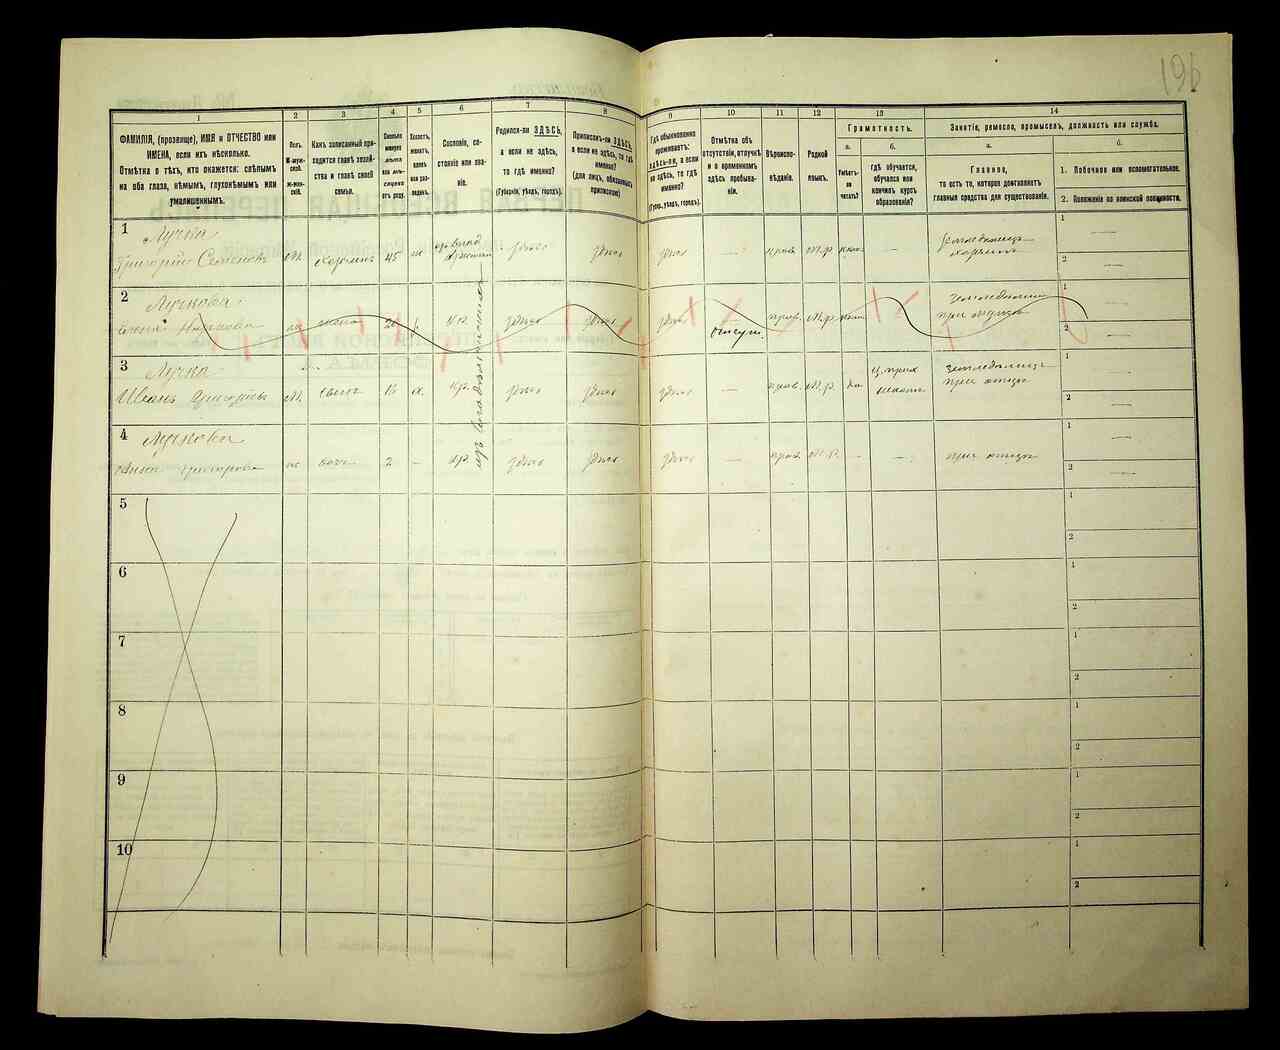 196
1
2
3
4
5
6
7
8
9
10
11
12
13
14
ФАМИЛІЯ, (прозвище), ИМЯ и ОТЧЕСТВО или
ИМЕНА, если ихъ нѣсколько.
Отмѣтка о тѣхъ, кто окажется: слѣпымъ
на оба глаза, нѣмымъ, глухонѣмымъ или
умалишеннымъ.
Полъ.
М-муж-
ской.
Ж-жен-
скій.
Какъ записанный при-
ходится главѣ хозяй-
ства и главѣ своей
семьи.
Сколько
минуло
лѣтъ
или мѣ-
сяцевъ
отъ роду.
Холостъ,
женатъ,
вдовъ
или раз-
веденъ.
Сословіе, со-
стояніе или зва-
ніе.
Родился-ли ЗДѢСЬ,
а если не здѣсь,
то гдѣ именно?
(Губернія, уѣздъ, городъ).
Приписанъ-ли ЗДѢСЬ,
а если не здѣсь, то гдѣ
именно?
(для лицъ, обязанныхъ
припискою)
Гдѣ обыкновенно
проживаетъ:
ЗДѢСЬ-ли, а если
не здѣсь, то гдѣ
именно?
(Губер., уѣздъ, городъ).
Отмѣтка объ
отсутствіи, отлучкѣ
и о временномъ
здѣсь пребыва-
ніи.
Вѣроиспо-
вѣданіе.
Родной
языкъ.
Грамотность.
а.
Умѣетъ-
ли
читать?
б.
Гдѣ обучается,
обучался или
кончилъ курсъ
образованія?
Занятіе, ремесло, промыселъ, должность или служба.
а.
Главное,
то есть то, которое доставляетъ
главныя средства для существованія.
б.
1. Побочное или вспомогательное.
2. Положеніе по воинской повинности.
1
Лучка
Григорій Семеновъ
м.
хозяинъ
45
здѣсь
здѣсь
здѣсь
—
прав.
М.р.
—
хозяинъ
1
—
2
—
2
Лучкова
жена
кр.
здѣсь
здѣсь
здѣсь
прав.
М.р.
1
2
3
Лучка
Иванъ Григорьевъ
м.
сынъ
16
х.
кр.
здѣсь
здѣсь
здѣсь
—
прав.
М.р.
да
при отцѣ
1
—
2
—
4
Лучкова
ж
дочь
2
—
кр.
здѣсь
здѣсь
здѣсь
—
прав.
М.р.
—
—
при отцѣ
1
—
2
—
5
1
2
6
1
2
7
1
2
8
1
2
9
1
2
10
1
2